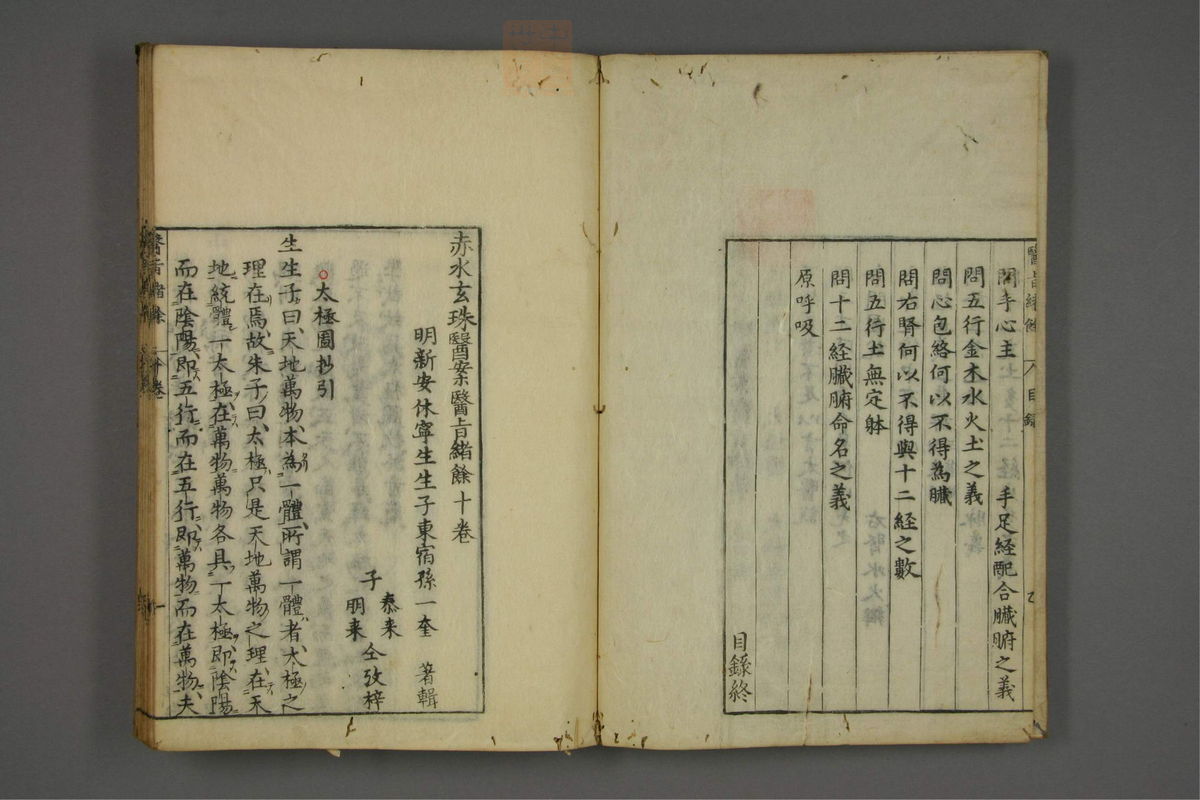 問手心主 手足経配合臓腑之義
問五行金木水火土之義
問心包絡何以不得為臓
問右腎何以不得與十二経之數
問五行土無定躰
問十二経臓腑命名之義
原呼吸
目録終
赤水玄珠醫案醫旨緒餘十卷
明新安休寧生生子東宿孫一奎 著輯
子 泰来
朋来 仝孜梓
太極圖抄引
生生子曰天地萬物本為一體所謂一體者太極之
理在焉故朱子曰太極只是天地萬物之理在天
地統體一太極在萬物萬物各具一太極即陰陽
而在陰陽即五行而在五行即萬物而在萬物夫